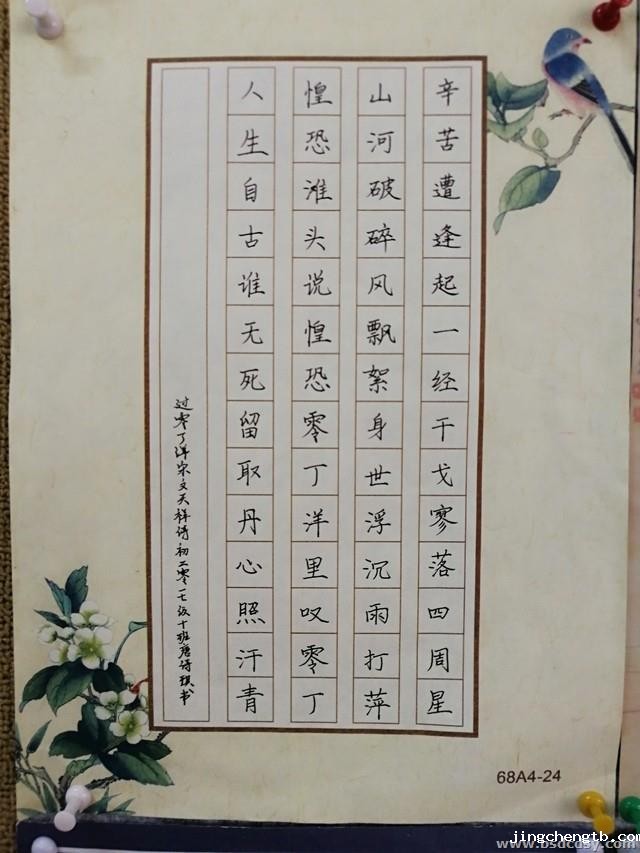 辛苦遭逢起一经干戈寥落四周星
山河破碎风飘絮身世浮沉雨打萍
惶恐滩头说惶恐零丁洋里叹零丁
人生自古谁无死留取丹心照汗青
过零丁洋宋文天祥诗初二零一七级十班唐诗琪书
68A4-24
jingchengtb.com